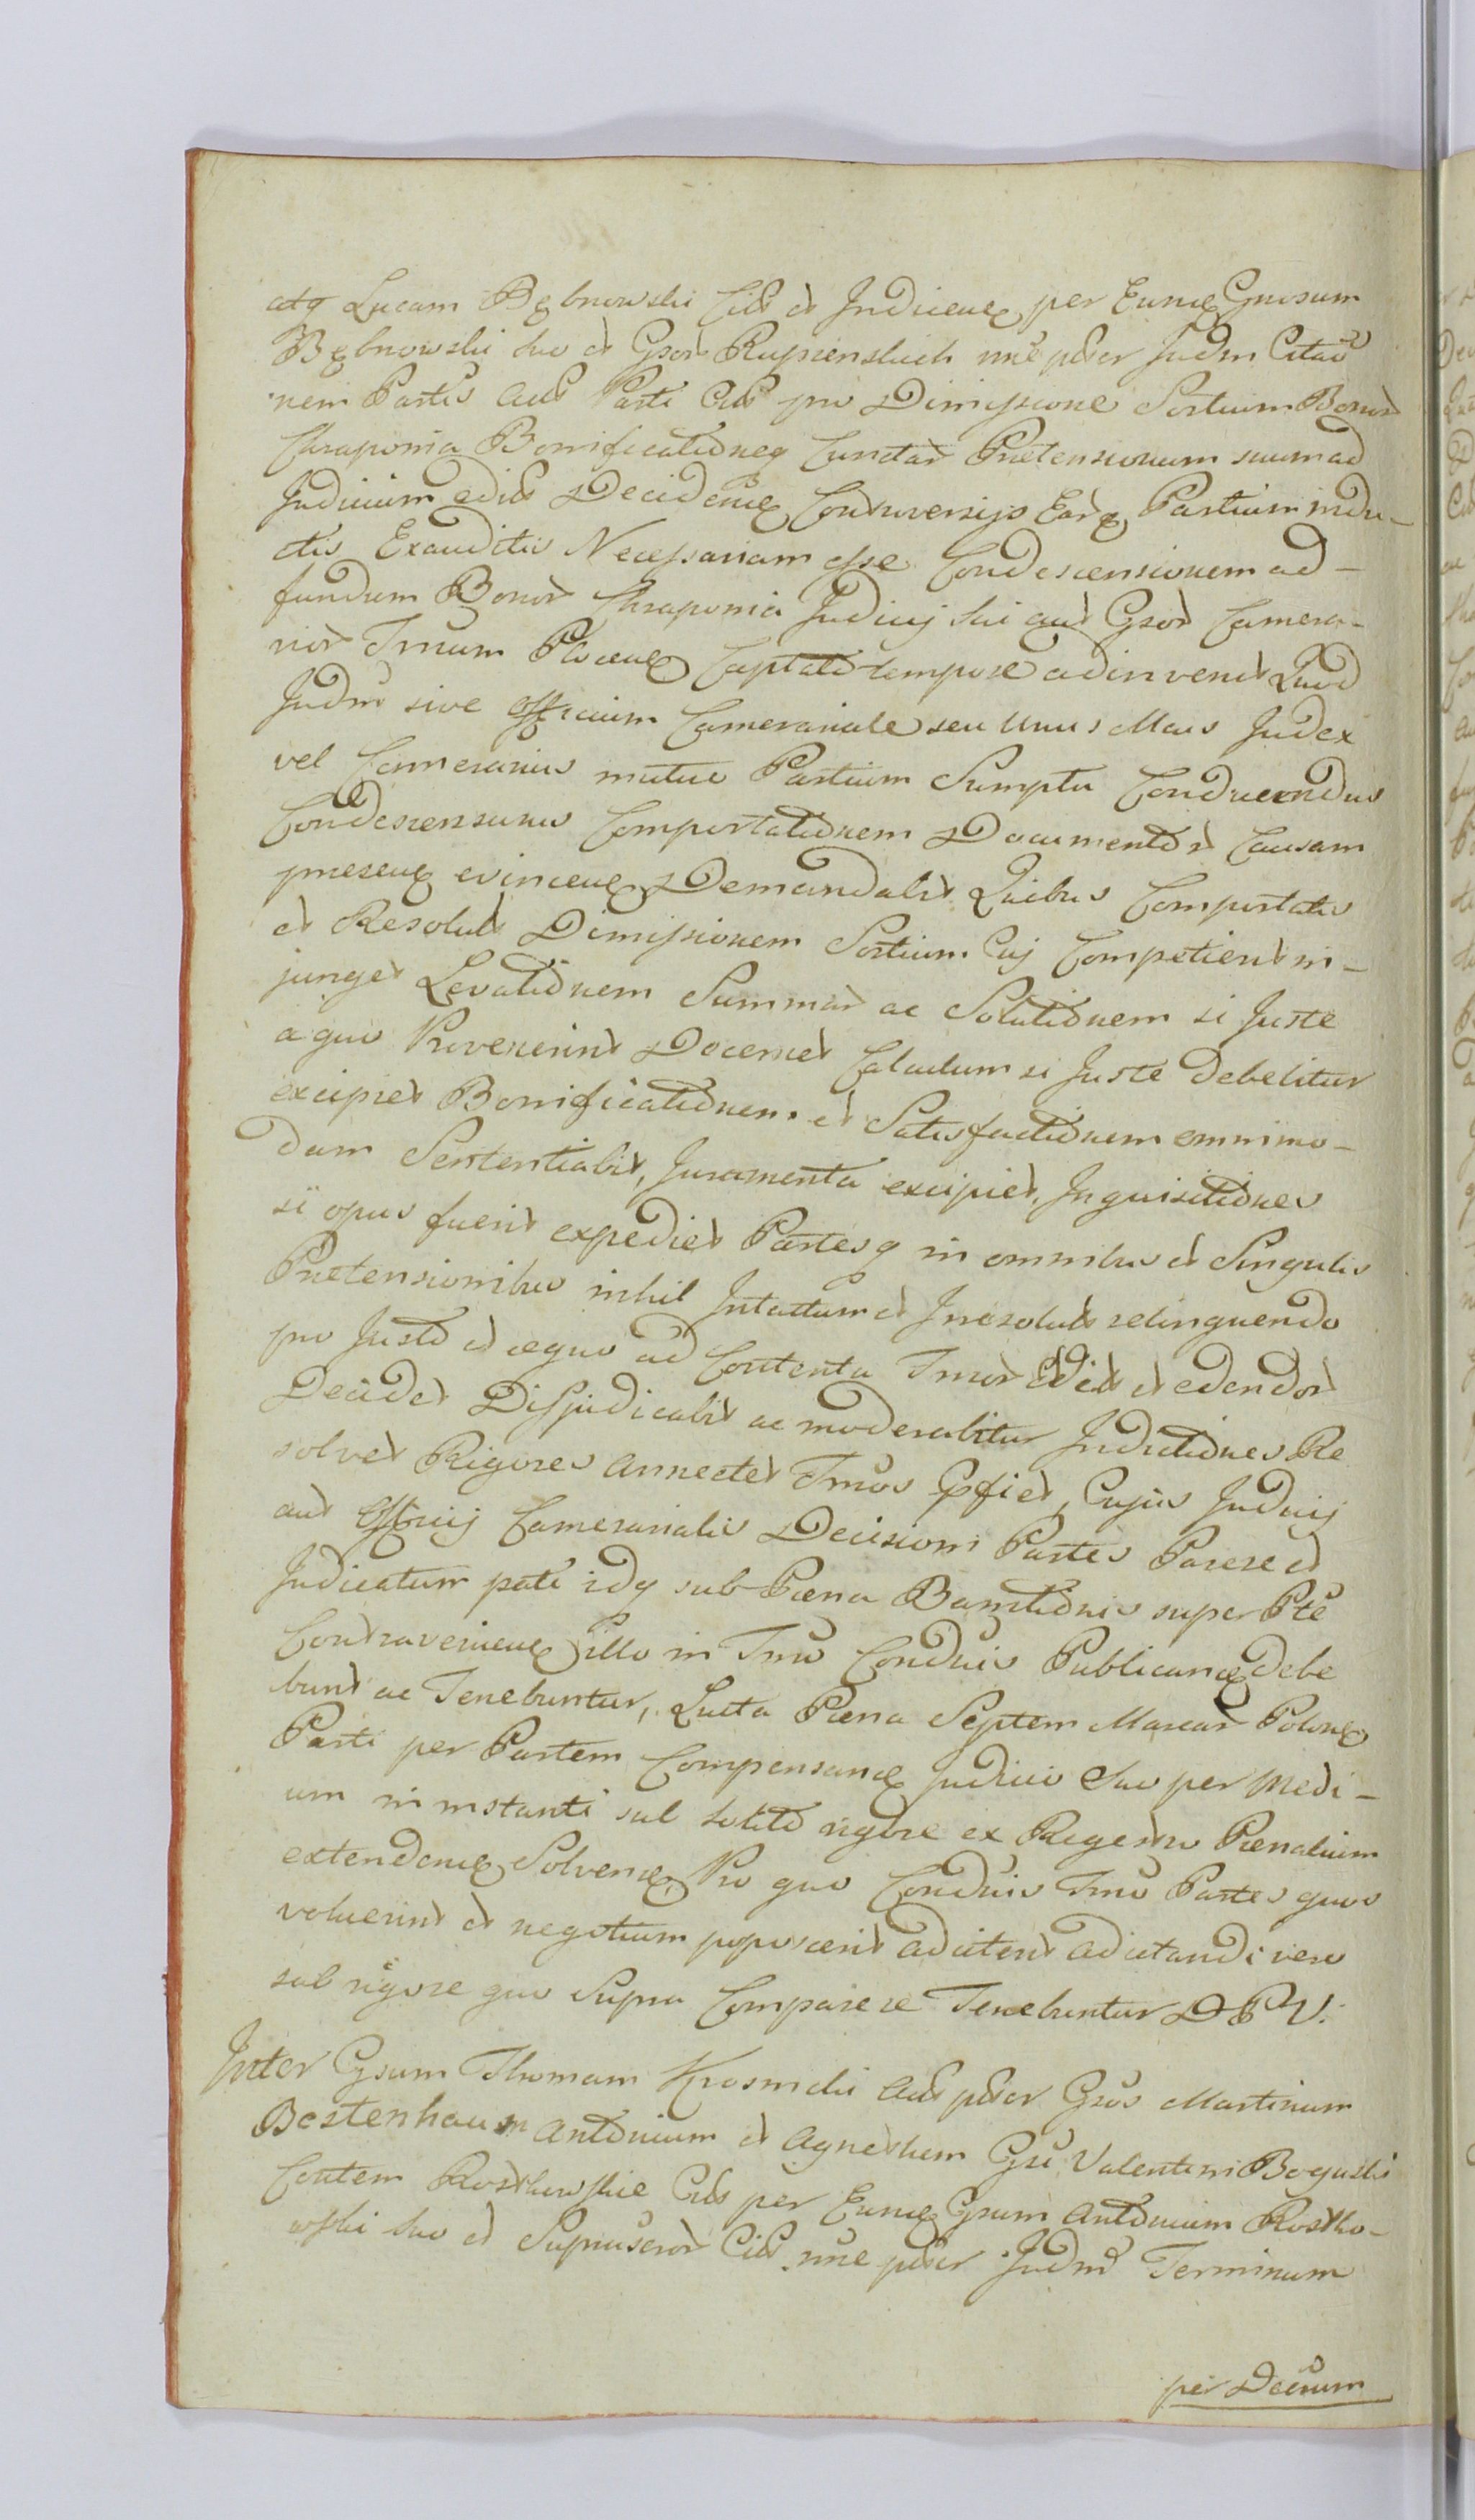 atq Lucam Bębnowski Citt et Judicenę per Eunę Gnosum
Bębnowski suo et Gsor Rupienskich nne pster Judm Citaō
nem Partis Actt Parti Citt pro Dimissione Sortium Bonor
Chraponia Bonificationeq Cunctar Prætensionum suum ad
Judicium edits Decidenę Controversijs Earę Partium indu-
ctis Exauditis Necessariam esse Condescensionem ad-
fundum Bonor Chraponia Judicij sui aut Gsor Camera-
rior Trrum Plocenę Captato tempore adinvenit Quod
Judm sive Officium Camerariale seu Unus Mars Judex
vel Camerarius mutuo Partium Sumptu Conducendus
Condescensurus Comportationem Documentor Causam
presenę evincenę Demandabit Quibus Comportatis
et Resolut Dimissionem Sortium Cuj Competient in-
junget Levationem Summar ac Solutionem si Juste
a quo Provenerint Docemet Calculum si Juste debebitur
excipiet Bonificationem et Satisfactionem omnimo-
dam Sententiabit, Juramenta excipiet, Inquisitiones
si opus fuerit expediet Partesq in omnibus et Singulis
Prætensionibus nihil Intactum et Irresolut relinquendo
pro Justo et æquo ad Contenta Trror Edit et edendor
Decidet Disjudicabit ac moderabitur Inductiones Re
solvet Rigores annectet Trros Cpfiet, Cujus Judicij
aut Officij Camerarialis Decisioni Partes Parere et
Judicatum pati idq sub Pæna Bannitionis super Pte
Contravenienę illo in Trro Conduis Publicanę debe
bunt ac Tenebuntur, Lucta Pæna Septem Marcar Polonę
Parti per Partem Compensanę Judicio Suo per Medi-
um in instanti sub solito rigore ex Regestro Pænalium
extendenę Solvenę, Pro quo Conduis Trro Partes quos
voluerint et negotium poposcerit adcitent adcitandi vero
sub rigore quo Supra Comparere Tenebuntur DPV.
Inter Gsum Thomam Krosnicki Actt pster Gsos Martinum
Bestenhaum Antonium et Agnethem Gsi Valentini Bogucki
Contem Rostkowskie Citt per Eunę Gsum Antonium Rostko-
wski suo et Supruscror Citt nne pster Judm Terminum
per Decrum